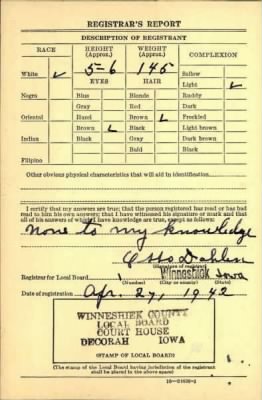 REGISTRAR'S REPORT
DESCRIPTION OF REGISTRANT
RACE HEIGHT (Approx.) WEIGHT (Approx.) COMPLEXION
White ✓ 5-6 145 Sallow
EYES HAIR Light ✓
Negro Blue Blonde Ruddy
Gray Red Dark
Oriental Hazel Brown ✓ Freckled
Brown ✓ Black Light brown
Indian Black Gray Dark brown
Bald Black
Filipino
Other obvious physical characteristics that will aid in identification
I certify that my answers are true; that the person registered has read or has had
read to him his own answers; that I have witnessed his signature or mark and that
all of his answers of which I have knowledge are true, except as follows:
None to my knowledge
Otto Dahlen
(Signature of registrar)
Registrar for Local Board 1 Winneshiek Iowa
(Number) (City or county) (State)
Date of registration Apr. 27, 1942
WINNESHIEK COUNTY
LOCAL BOARD
COURT HOUSE
DECORAH IOWA
(STAMP OF LOCAL BOARD)
(The stamp of the Local Board having jurisdiction of the registrant
shall be placed in the above space)